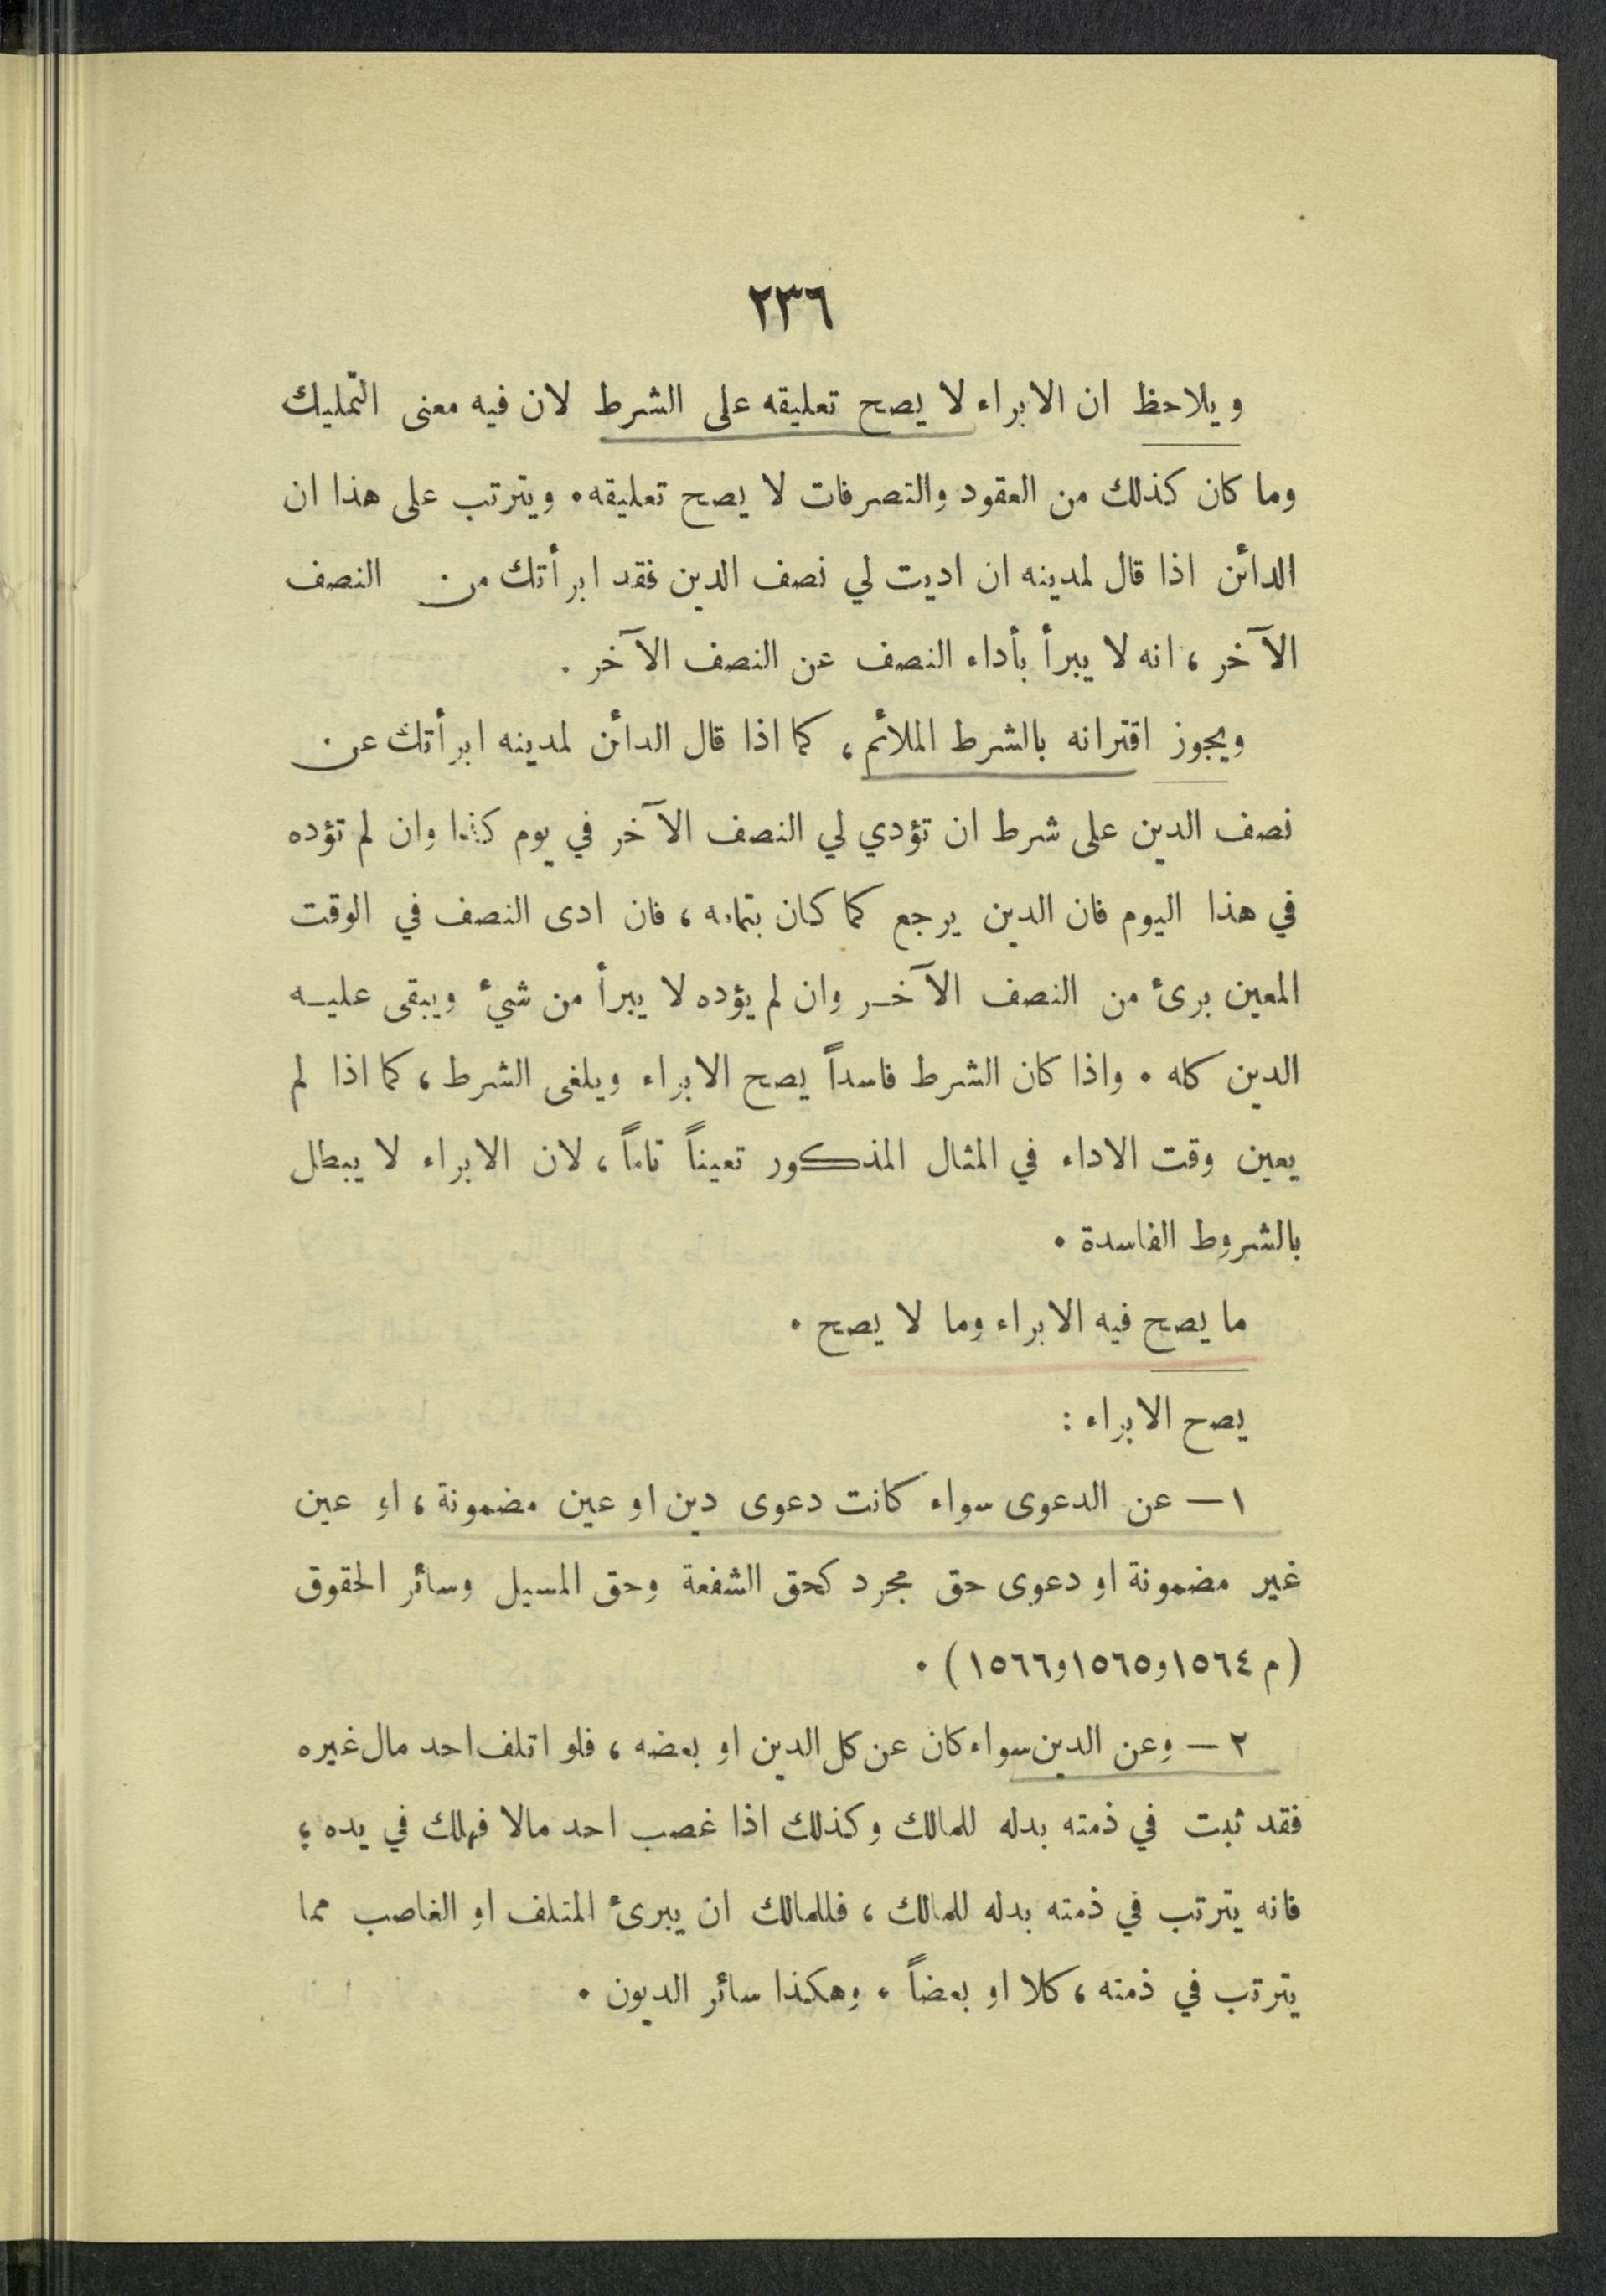 ٢٣٦
ويلاحظ ان الابراء لا يصح تعليقه على الشرط لان فيه معنى التمليك
وما كان كذلك من العقود والتصرفات لا يصح تعليقه. ويترتب على هذا ان
الدائن اذا قال لمدينه ان اديت لي نصف الدين فقد ابرأتك من النصف
الآخر ، انه لا يبرأ بأداء النصف عن النصف الآخر .
ويجوز اقترانه بالشرط الملائم ، كما اذا قال الدائن لمدينه ابرأتك عن
نصف الدين على شرط ان تؤدي لي النصف الآخر في يوم كذا وان لم تؤده
في هذا اليوم فان الدين يرجع كما كان بتمامه ، فان ادى النصف في الوقت
المعين برئ من النصف الآخر وان لم يؤده لا يبرأ من شيء ويبقى عليه
الدين كله . واذا كان الشرط فاسداً يصح الابراء ويلغى الشرط ، كما اذا لم
يعين وقت الاداء في المثال المذكور تعيناً تاماً ، لان الابراء لا يبطل
بالشروط الفاسدة .
ما يصح فيه الابراء وما لا يصح .
يصح الابراء :
١ — عن الدعوى سواء كانت دعوى دين او عين مضمونة ، او عين
غير مضمونة او دعوى حق مجرد كحق الشفعة وحق المسيل وسائر الحقوق
( م ١٥٦٤ و١٥٦٥ و١٥٦٦ ) .
٢ — وعن الدين سواء كان عن كل الدين او بعضه ، فلو اتلف احد مال غيره
فقد ثبت في ذمته بدله للمالك وكذلك اذا غصب احد مالا فهلك في يده ،
فانه يترتب في ذمته بدله للمالك ، فللمالك ان يبرئ المتلف او الغاصب مما
يترتب في ذمته ، كلا او بعضاً . وهكذا سائر الديون .